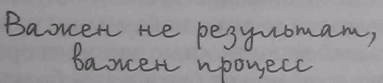 Важен не результат,
важен процесс